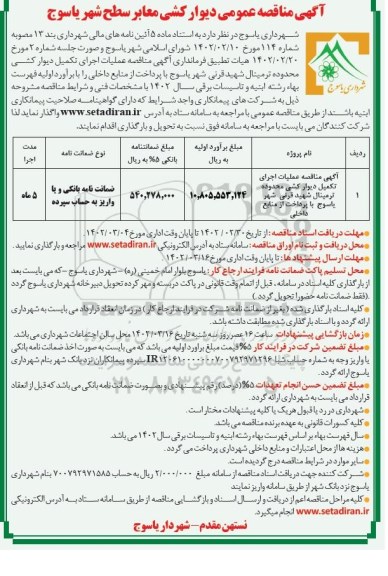 آگهی مناقصه عمومی دیوار کشی معابر سطح شهر یاسوج
شهرداری یاسوج
شهرداری یاسوج در نظر دارد به استناد ماده ۵ آئین نامه های مالی شهرداری بند ۱۳ مصوبه
شماره ۱۱۴ مورخ ۱۴۰۲/۰۲/۱۰ شورای اسلامی شهر یاسوج و صورت جلسه شماره ۲ مورخ
۱۴۰۲/۰۲/۲۰ هیات تطبیق فرمانداری آگهی مناقصه عملیات اجرای تکمیل دیوار کشی
محدوده ترمینال شهید قرنی شهر یاسوج با پرداخت از منابع داخلی را با برآورد اولیه فهرست
بهاء رشته ابنیه و تاسیسات برقی سال ۱۴۰۲ با مشخصات فنی و شرایط مناقصه مشروحه
ذیل به شرکت های پیمانکاری واجد شرایط که دارای گواهینامه صلاحیت پیمانکاری
ابنیه باشند از طریق مناقصه عمومی با مراجعه به سامانه ستاد به آدرس www.setadiran.ir واگذار نماید لذا
شرکت کنندگان می بایست با مراجعه به سامانه فوق نسبت به تحویل و بارگذاری اقدام نمایند.
ردیف نام پروژه مبلغ برآورد اولیه به ریال مبلغ ضمانتنامه بانکی ۵% به ریال نوع ضمانت نامه مدت اجرا
۱ آگهی مناقصه عملیات اجرای تکمیل دیوار کشی محدوده ترمینال شهید قرنی شهر یاسوج با پرداخت از منابع داخلی ۱۰,۸۰۵,۵۵۳,۱۲۴ ۵۴۰,۲۷۸,۰۰۰ ضمانت نامه بانکی و یا واریز به حساب سپرده ۵ ماه
مهلت دریافت اسناد مناقصه: از تاریخ ۱۴۰۲/۰۲/۳۰ تا پایان وقت اداری مورخ ۱۴۰۲/۰۳/۰۴
محل دریافت و ثبت نام اوراق مناقصه: سامانه ستاد به آدرس الکترونیکی www.setadiran.ir مراجعه و بارگذاری نمایید.
مهلت ارسال پیشنهاد ها: تا پایان وقت اداری مورخ ۱۴۰۲/۰۳/۱۶
محل تسلیم پاکت ضمانت نامه فرایند ارجاع کار: یاسوج بلوار امام خمینی (ره) - شهرداری یاسوج - که می بایست بعد
از بارگذاری کلیه اسناد در سامانه، قبل از اتمام وقت قانونی در پاکت دربسته و مهر کرده تحویل دبیرخانه شهرداری یاسوج گردد
(فقط ضمانت نامه حضوراً تحویل گردد.)
کلیه اسناد بارگذاری شده (بغیر از ضمانت نامه شرکت در فرایند ارجاع کار) در زمان انعقاد قرارداد می بایست به شهرداری
ارائه گردد و با اسناد بارگذاری شده مطابقت داشته باشد.
زمان بازگشایی پیشنهادات ساعت ۱۶ عصر روز سه شنبه تاریخ ۱۴۰۲/۰۳/۱۶ محل سالن اجتماعات شهرداری می باشد.
مبلغ تضمین شرکت در فرآیند کار ۵% مبلغ برآورد اولیه می باشد که می بایست به صورت اخذ ضمانت نامه بانکی
یا واریز وجه به شماره حساب شبا سپرده پیمانکاران نزد بانک شهر بنام شهرداری
یاسوج ارائه گردد.
مبلغ تضمین حسن انجام تعهدات ۵% (درصد) رقم پیشنهادی و بصورت ضمانت نامه بانکی می باشد که قبل از انعقاد
قرارداد می بایست به شهرداری ارائه گردد.
شهرداری در رد یا قبول هریک یا کلیه پیشنهادات مختار است.
کلیه کسورات قانونی به عهده برنده مناقصه می باشد.
سال فهرست بهاء بر اساس فهرست بهاء رشته ابنیه و تاسیسات برقی سال ۱۴۰۲ می باشد.
هزینه ها از محل اعتبارات و منابع داخلی شهرداری پرداخت می گردد.
سایر موارد در شرایط مناقصه درج گردیده است.
شرکت کننده جهت دریافت اسناد مناقصه از سامانه مبلغ ۲/۰۰۰/۰۰۰ ریال به حساب ۷۰۰۷۹۲۹۷۱۵۸۵ بنام شهرداری
یاسوج نزد بانک شهر از طریق سامانه واریز نمایند
کلیه مراحل مناقصه اعم از دریافت و ارسال اسناد و بازگشایی مناقصه از طریق سامانه ستاد به آدرس الکترونیکی
www.setadiran.ir انجام میگیرد.
نستهن مقدم - شهردار یاسوج